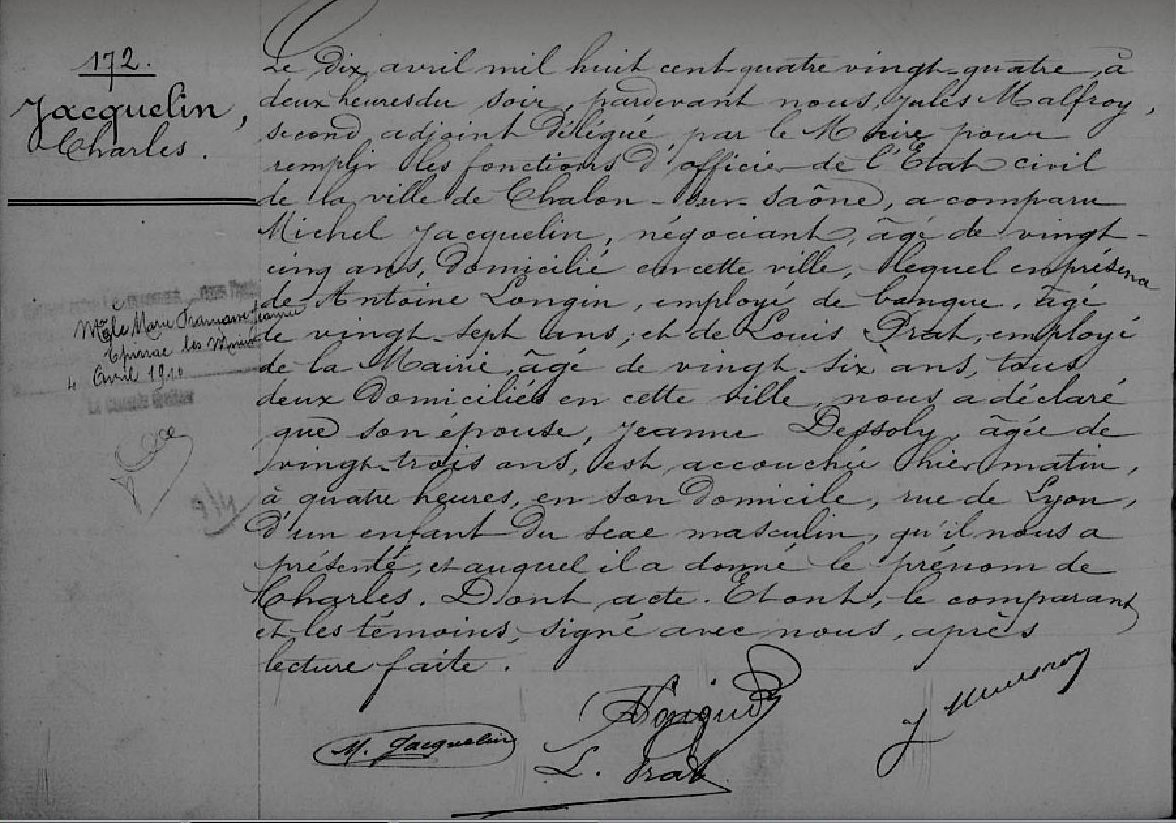 172.
Jacquelin,
Charles.
Le dix avril mil huit cent quatre vingt-quatre, à
deux heures du soir, pardevant nous, Jules Malfroy,
second adjoint délégué par le Maire pour
remplir les fonctions d'officier de l'État civil
de la ville de Chalon-sur-Saône, a comparu
Michel Jacquelin, négociant, âgé de vingt-
cinq ans, domicilié en cette ville, lequel en présence
de Antoine Longin, employé de banque, âgé
de vingt-sept ans, et de Louis Prat, employé
de la Mairie, âgé de vingt-six ans, tous
deux domiciliés en cette ville, nous a déclaré
que son épouse, Jeanne Dessoly, âgée de
vingt-trois ans, est accouchée hier matin,
à quatre heures, en son domicile, rue de Lyon,
d'un enfant du sexe masculin, qu'il nous a
présenté, et auquel il a donné le prénom de
Charles. Dont acte. Et ont, le comparant
et les témoins, signé avec nous, après
lecture faite.
Marie Jeanne
les
4 Avril 1910
9/4
M. Jacquelin
L. Prat
J